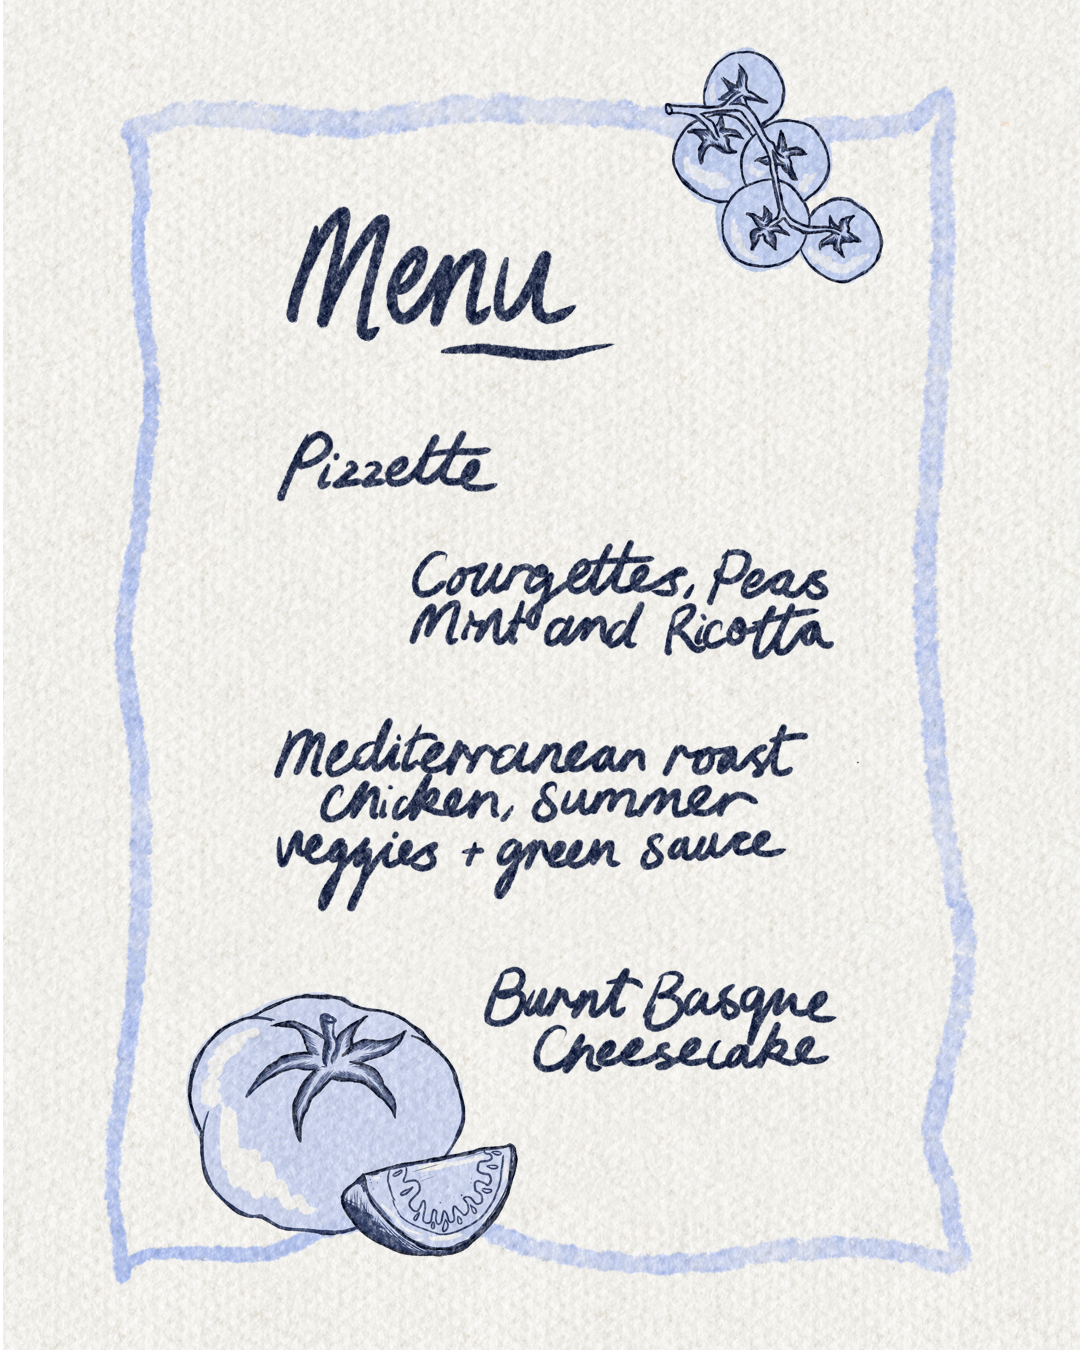 Menu
Pizzette
Courgettes, Peas
Mint and Ricotta
Mediterranean roast
chicken, summer
veggies + green sauce
Burnt Basque
Cheesecake